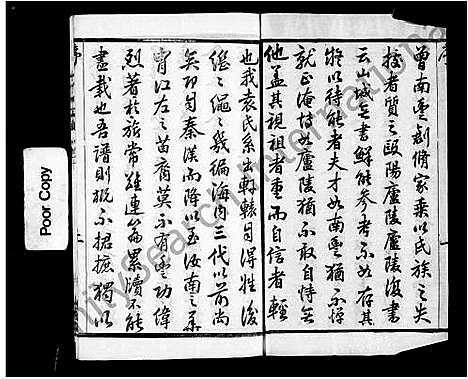 曾南豐創脩家乘以氏族之失
授者質之歐陽廬陵廬陵復書
云山城無書鮮能參考不如存其
疑以待能者夫才如南豐猶不憚
就正淹博如廬陵猶不敢自恃無
他蓋其視祖者重而自信者輕
也我袁氏系出軒轅目得姓後
繼繼繩繩幾編海內三代以前尚
矣即自秦漢而降以至汝南之
江左之苗裔莫不有豐功偉
烈著於旂常雖連篇累牘不能
盡載也吾譜則概不捃摭獨以
序
二
Poor Copy